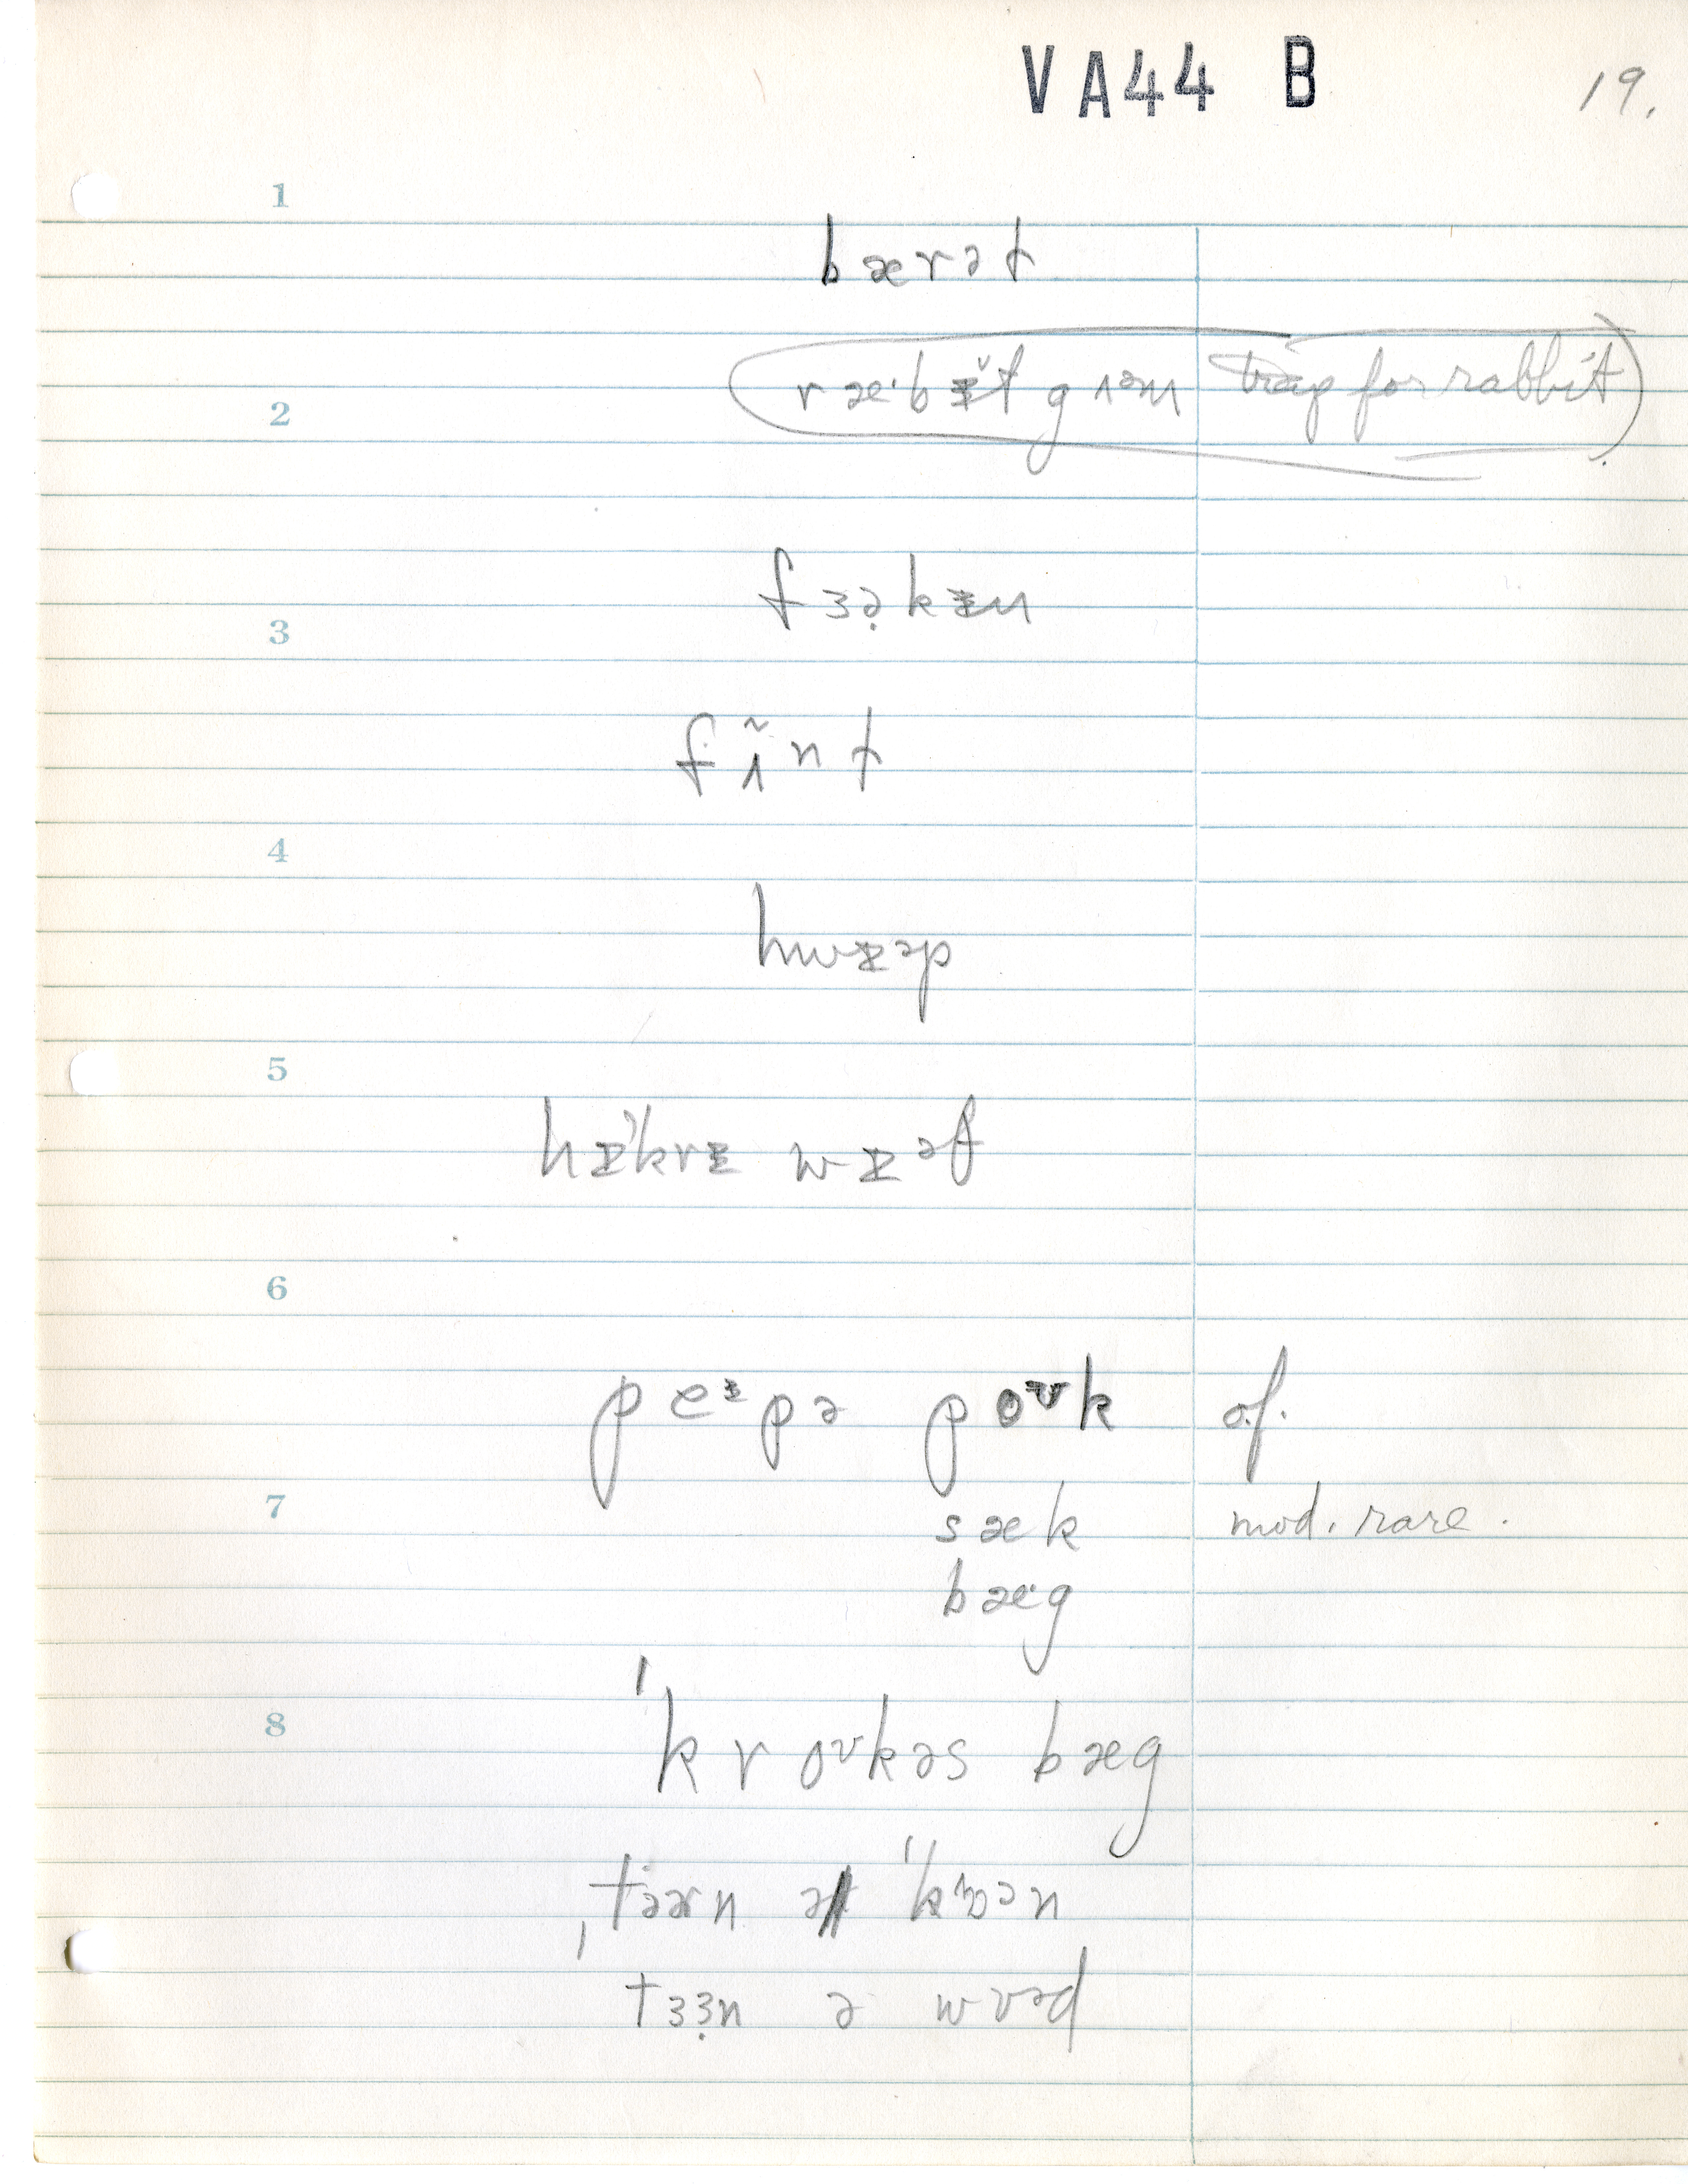 VA44 B
19.
1
bærət
2
ræˑbɪ̆t gʌəm trap for rabbit
3
fɜə̣kɪn
fʌ̃nt
4
hwɪəp
5
hɪkrɪ wɪəf
6
peᶦpə poᶷk o.f.
7
sæk mod. rare.
bæˑg
8
ˈkroᶷkəs bæg
ə
tɜɜ̣n ə wʊəd